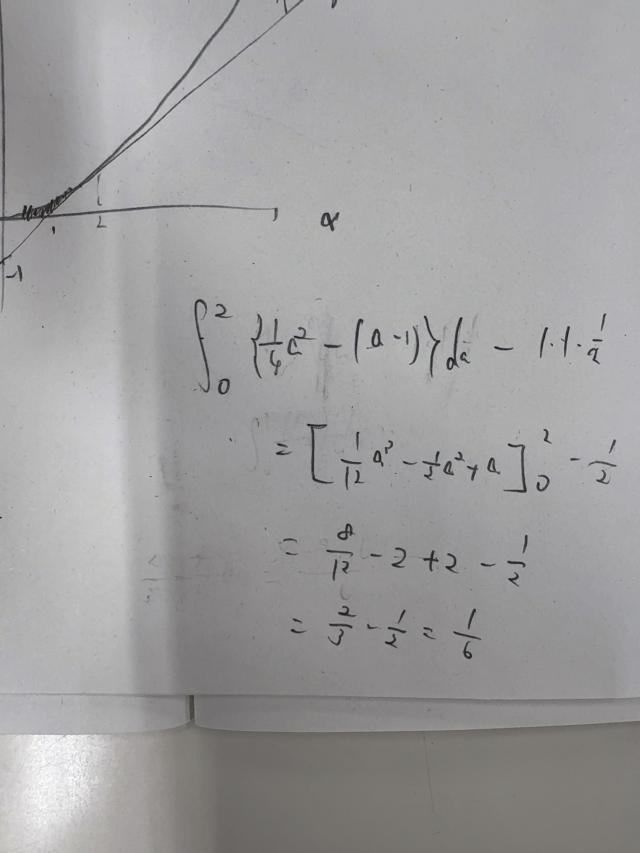 1
2
a
-1
∫₀² {1/4 a² - (a-1)} da - 1·1·1/2
= [1/12 a³ - 1/2 a² + a]₀² - 1/2
= 8/12 - 2 + 2 - 1/2
= 2/3 - 1/2 = 1/6